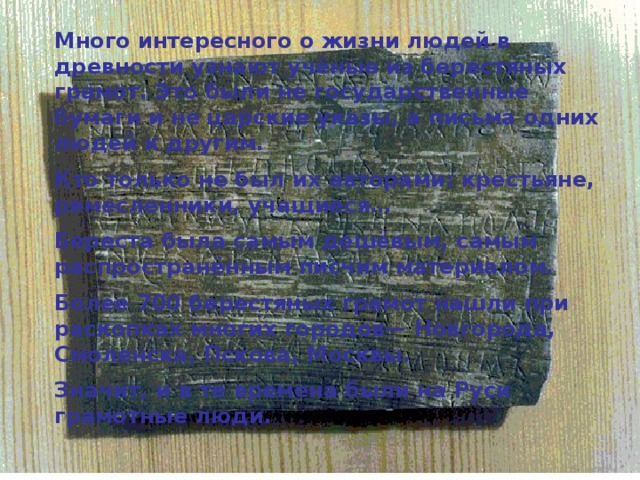 Много интересного о жизни людей в
древности узнают учёные из берестяных
грамот. Это были не государственные
бумаги и не царские указы, а письма одних
людей к другим.
Кто только не был их авторами: крестьяне,
ремесленники, учащиеся…
Береста была самым дешёвым, самым
распространённым писчим материалом.
Более 700 берестяных грамот нашли при
раскопках многих городов— Новгорода,
Смоленска, Пскова, Москвы.
Значит, и в те времена были на Руси
грамотные люди.